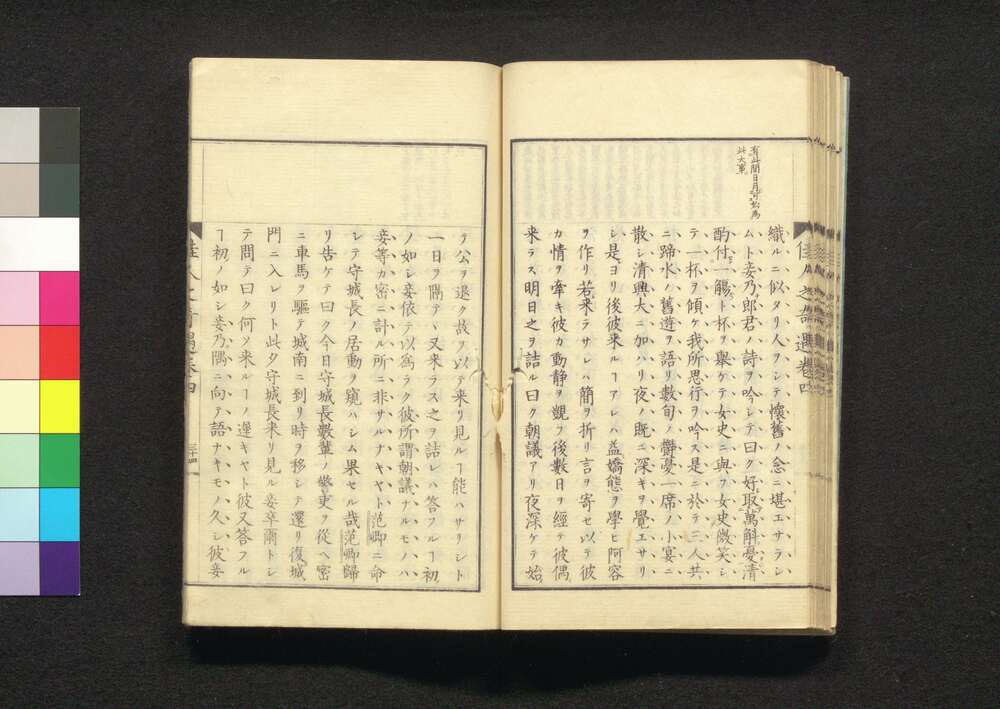 有此間日月可然為
此大軍
織ルニ似タリ人ヲシテ懷舊ノ念ニ堪エサラシ
ムト妾乃郎君ノ詩ヲ吟シテ曰ク好取萬斛憂清
酌付一觴ト杯ヲ舉ケテ女史ニ與フ女史微笑シ
テ一杯ヲ傾ケ我所思行ヲ吟ス是ニ於テ三人共
ニ蹄水ノ舊遊ヲ語リ數旬ノ欝憂一席ノ小宴ニ
散シ清興大ニ加ハリ夜ノ既ニ深キヲ覺エサリ
シ是ヨリ後彼来ルヿアレハ益嬌態ヲ學ヒ阿容
ヲ作リ若来ラサレハ簡ヲ折リ言ヲ寄セ以テ彼
カ情ヲ牽キ彼カ動静ヲ覵フ後數日ヲ經テ彼偶
来ラス明日之ヲ詰ル曰ク朝議アリ夜深ケテ始
テ公ヲ退ク故ヲ以テ来リ見ルヿ能ハサリシト
一日ヲ隔テヽ又来ラス之ヲ詰レハ答フルヿ初
ノ如シ妾依テ以為ラク彼所謂朝議ナルモノハ
妾等カ密ニ計ル所ニ非サルナキヤト范卿ニ命
シテ守城長ノ居動ヲ窺ハシム果セル哉范卿歸
リ告ケテ曰ク今日守城長數輩ノ警吏ヲ從ヘ密
ニ車馬ヲ驅テ城南ニ到リ時ヲ移シテ還リ復城
門ニ入レリト此夕守城長来リ見ル妾卒爾トシ
テ問テ曰ク何ソ来ルヿノ遲キヤト彼又答フル
ヿ初ノ如シ妾乃隅ニ向テ語ナキモノ久シ彼妾
佳人之奇遇卷四
三十四
佳人之奇遇卷四